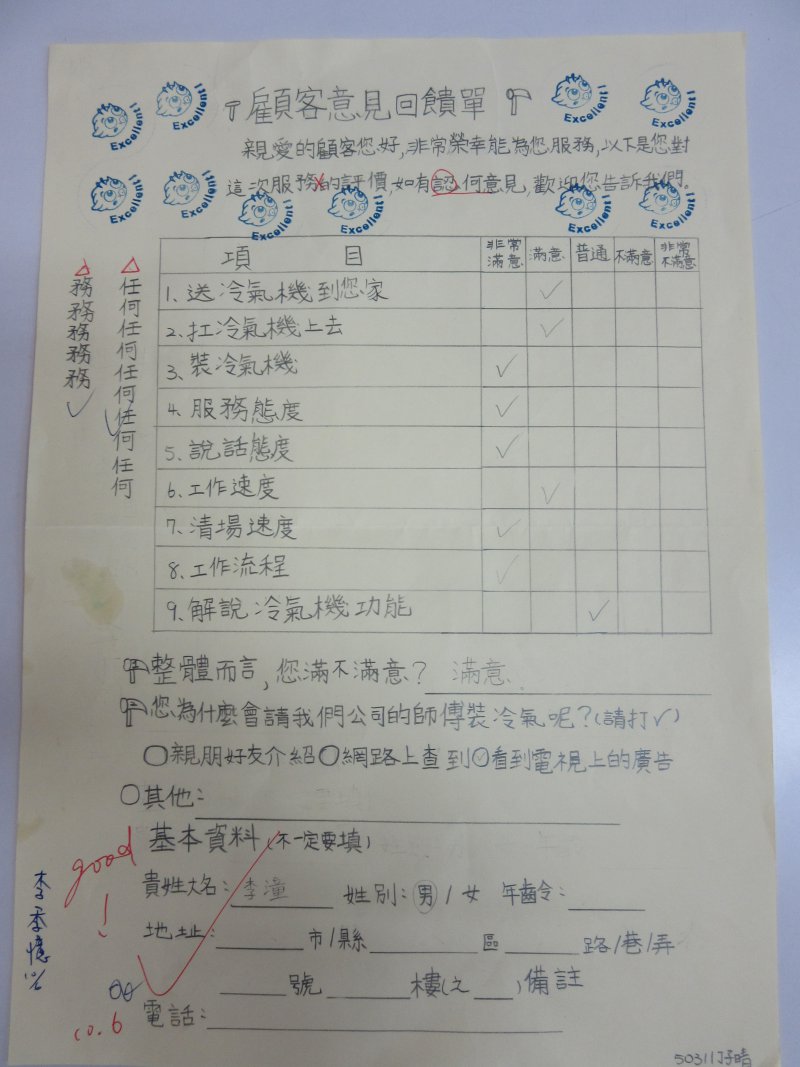 Excellent!
Excellent!
Excellent!
Excellent!
Excellent!
Excellent!
Excellent!
Excellent!
Excellent!
Excellent!
顧客意見回饋單
親愛的顧客您好,非常榮幸能為您服務,以下是您對
這次服務的評價,如有認何意見,歡迎您告訴我們。
項目 非常滿意 滿意 普通 不滿意 非常不滿意
1、送冷氣機到您家 ✓
2、扛冷氣機上去 ✓
3、裝冷氣機 ✓
4、服務態度 ✓
5、說話態度 ✓
6、工作速度 ✓
7、清場速度 ✓
8、工作流程 ✓
9、解說冷氣機功能 ✓
△任何任何任何任何任何
△務務務務務
整體而言,您滿不滿意?滿意.
您為什麼會請我們公司的師傅裝冷氣呢?(請打✓)
○親朋好友介紹○網路上查到○✓看到電視上的廣告
○其他:
good!
基本資料(不一定要填)
貴姓大名:李潼 姓別:男/女 年齡:
地址: 市/縣 區 路/巷/弄
號 樓(之 )備註
電話:
10.6
50311丁子晴